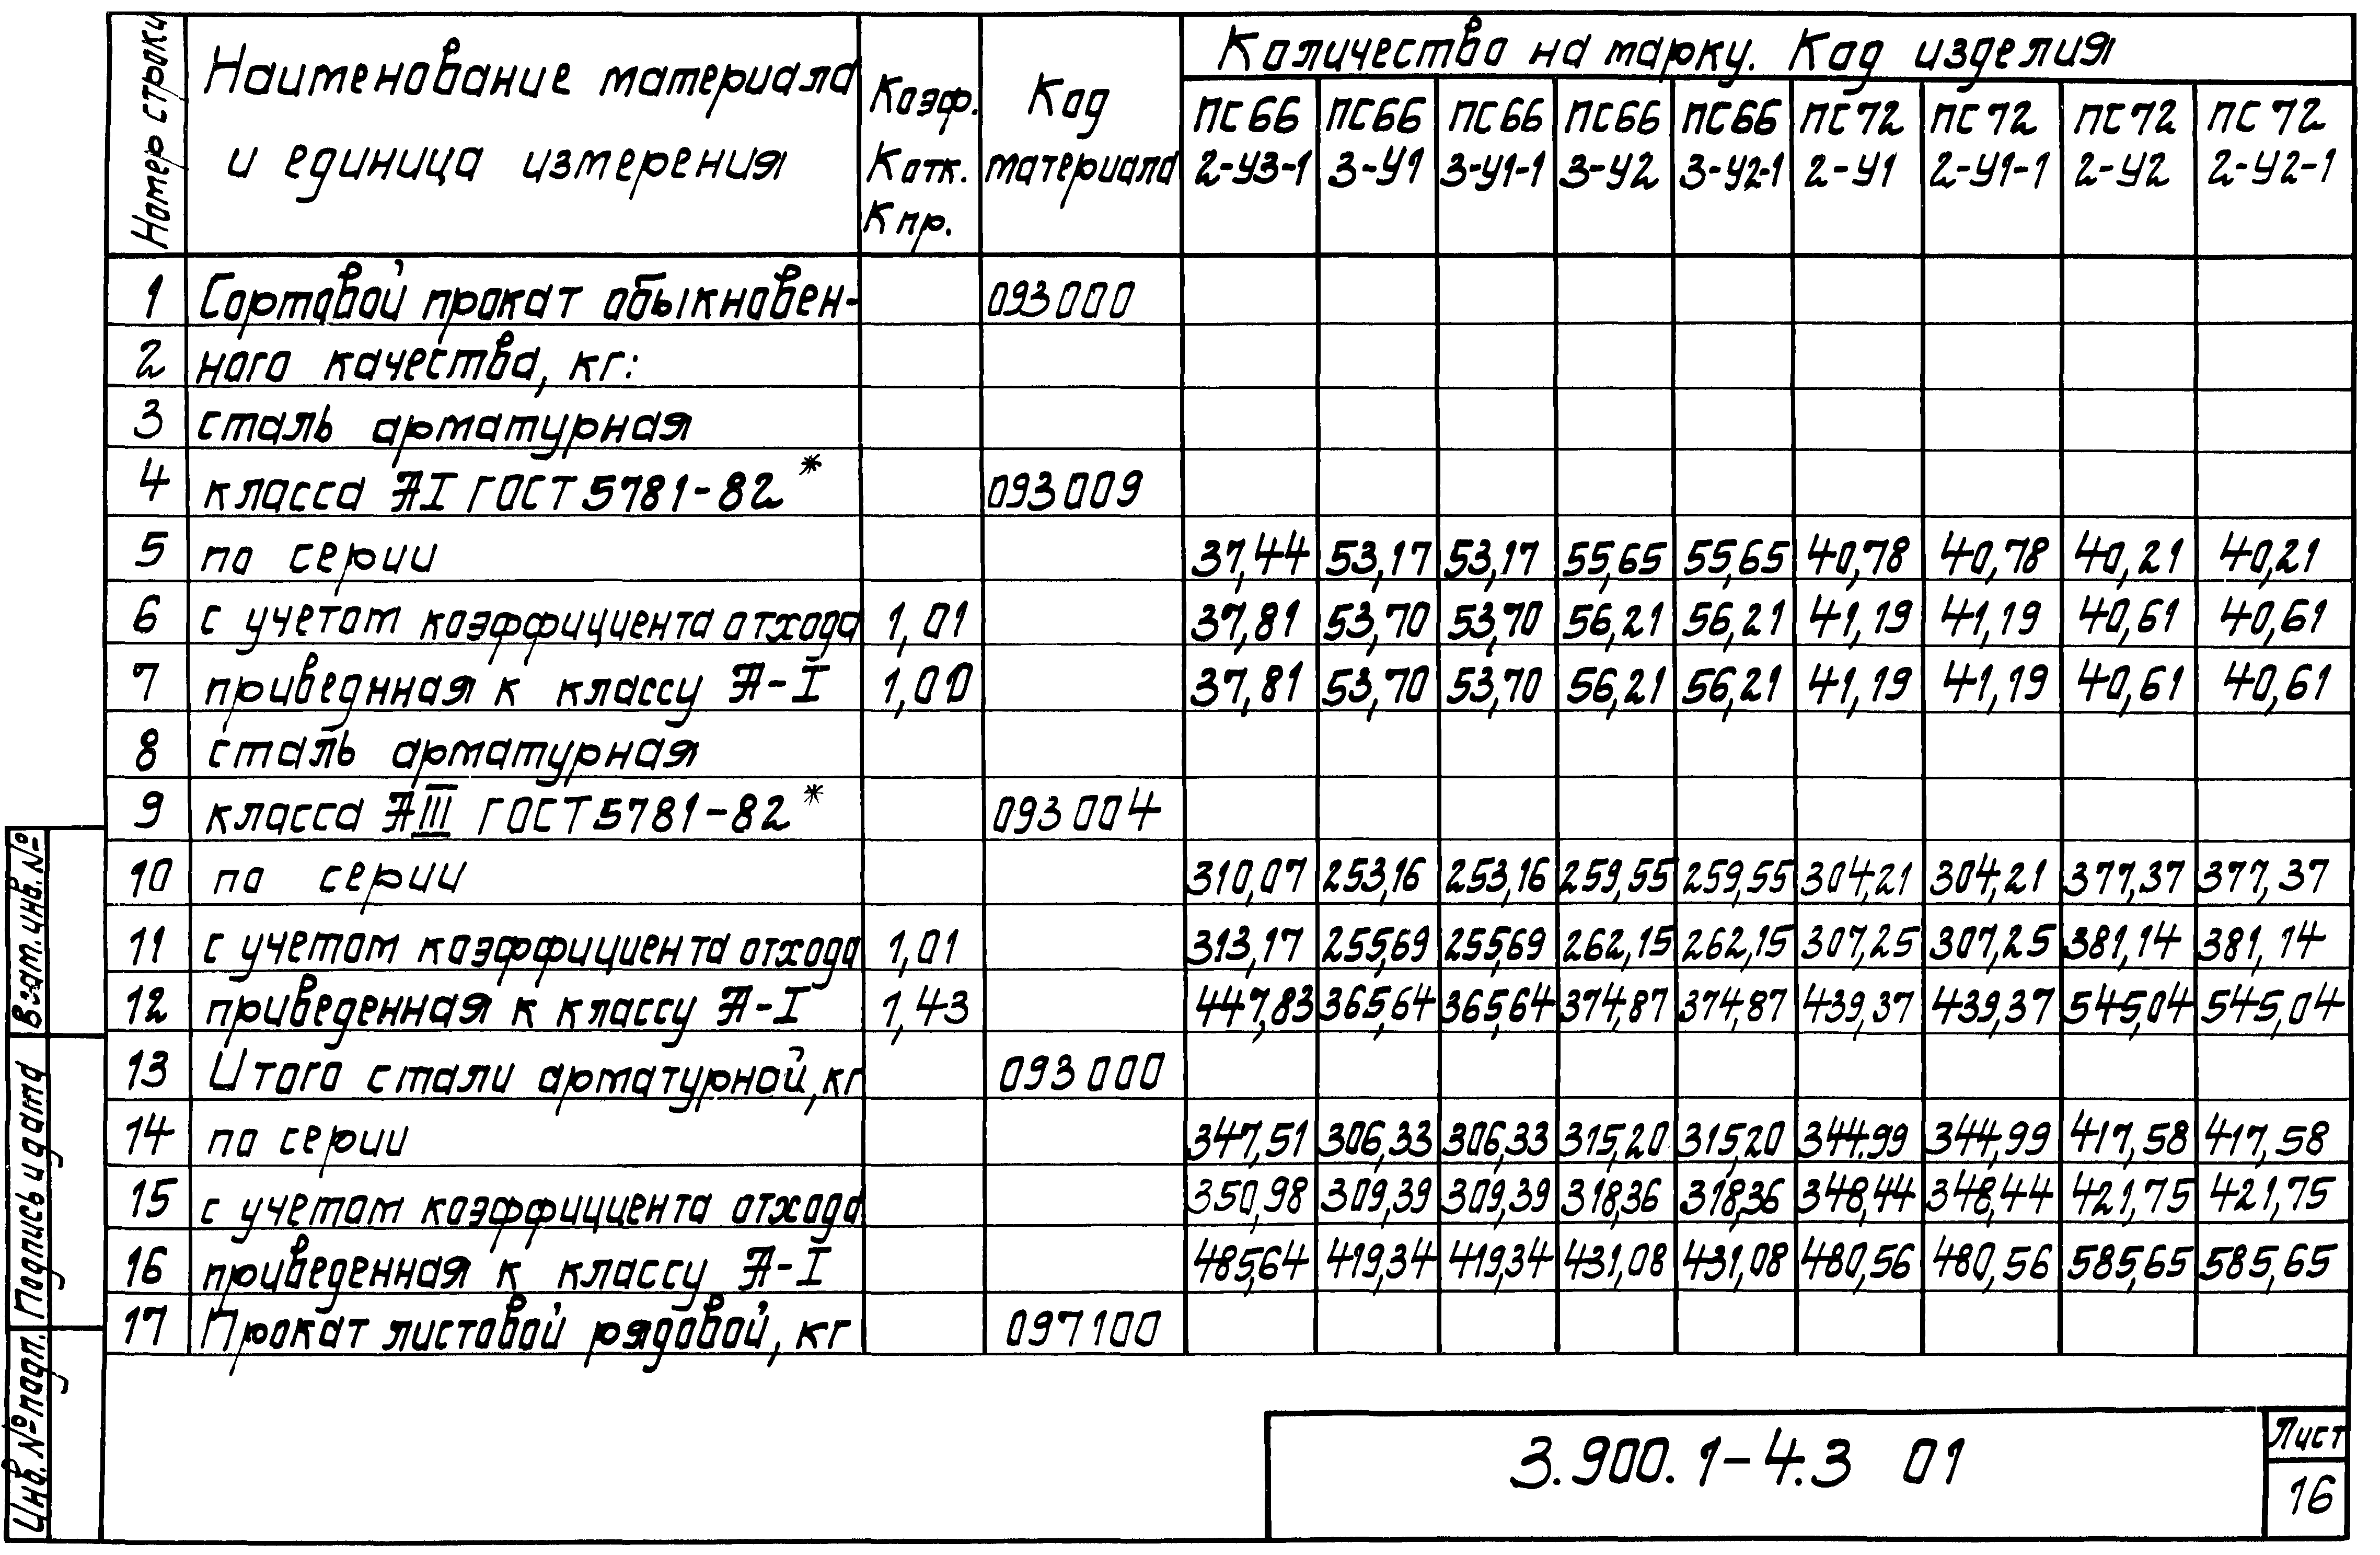 Номер строки
Наименование материала и единица измерения
Коэф. Котк. Кпр.
Код материала
Количество на марку. Код изделия
ПС66 2-У3-1 | ПС66 3-У1 | ПС66 3-У1-1 | ПС66 3-У2 | ПС66 3-У2-1 | ПС72 2-У1 | ПС72 2-У1-1 | ПС72 2-У2 | ПС72 2-У2-1
1 Сортовой прокат обыкновен- 093000
2 ного качества, кг:
3 сталь арматурная
4 класса АI ГОСТ 5781-82* 093009
5 по серии 37,44 53,17 53,17 55,65 55,65 40,78 40,78 40,21 40,21
6 с учетом коэффициента отхода 1,01 37,81 53,70 53,70 56,21 56,21 41,19 41,19 40,61 40,61
7 приведнная к классу А-I 1,00 37,81 53,70 53,70 56,21 56,21 41,19 41,19 40,61 40,61
8 сталь арматурная
9 класса АIII ГОСТ 5781-82* 093004
10 по серии 310,07 253,16 253,16 259,55 259,55 304,21 304,21 377,37 377,37
11 с учетом коэффициента отхода 1,01 313,17 255,69 255,69 262,15 262,15 307,25 307,25 381,14 381,14
12 приведенная к классу А-I 1,43 447,83 365,64 365,64 374,87 374,87 439,37 439,37 545,04 545,04
13 Итого стали арматурной, кг 093000
14 по серии 347,51 306,33 306,33 315,20 315,20 344.99 344,99 417,58 417,58
15 с учетом коэффициента отхода 350,98 309,39 309,39 318,36 318,36 348,44 348,44 421,75 421,75
16 приведенная к классу А-I 485,64 419,34 419,34 431,08 431,08 480,56 480,56 585,65 585,65
17 Прокат листовой рядовой, кг 097100
Взам. инв. №
Подпись и дата
Инв. № подл.
3.900.1-4.3 01
Лист
16